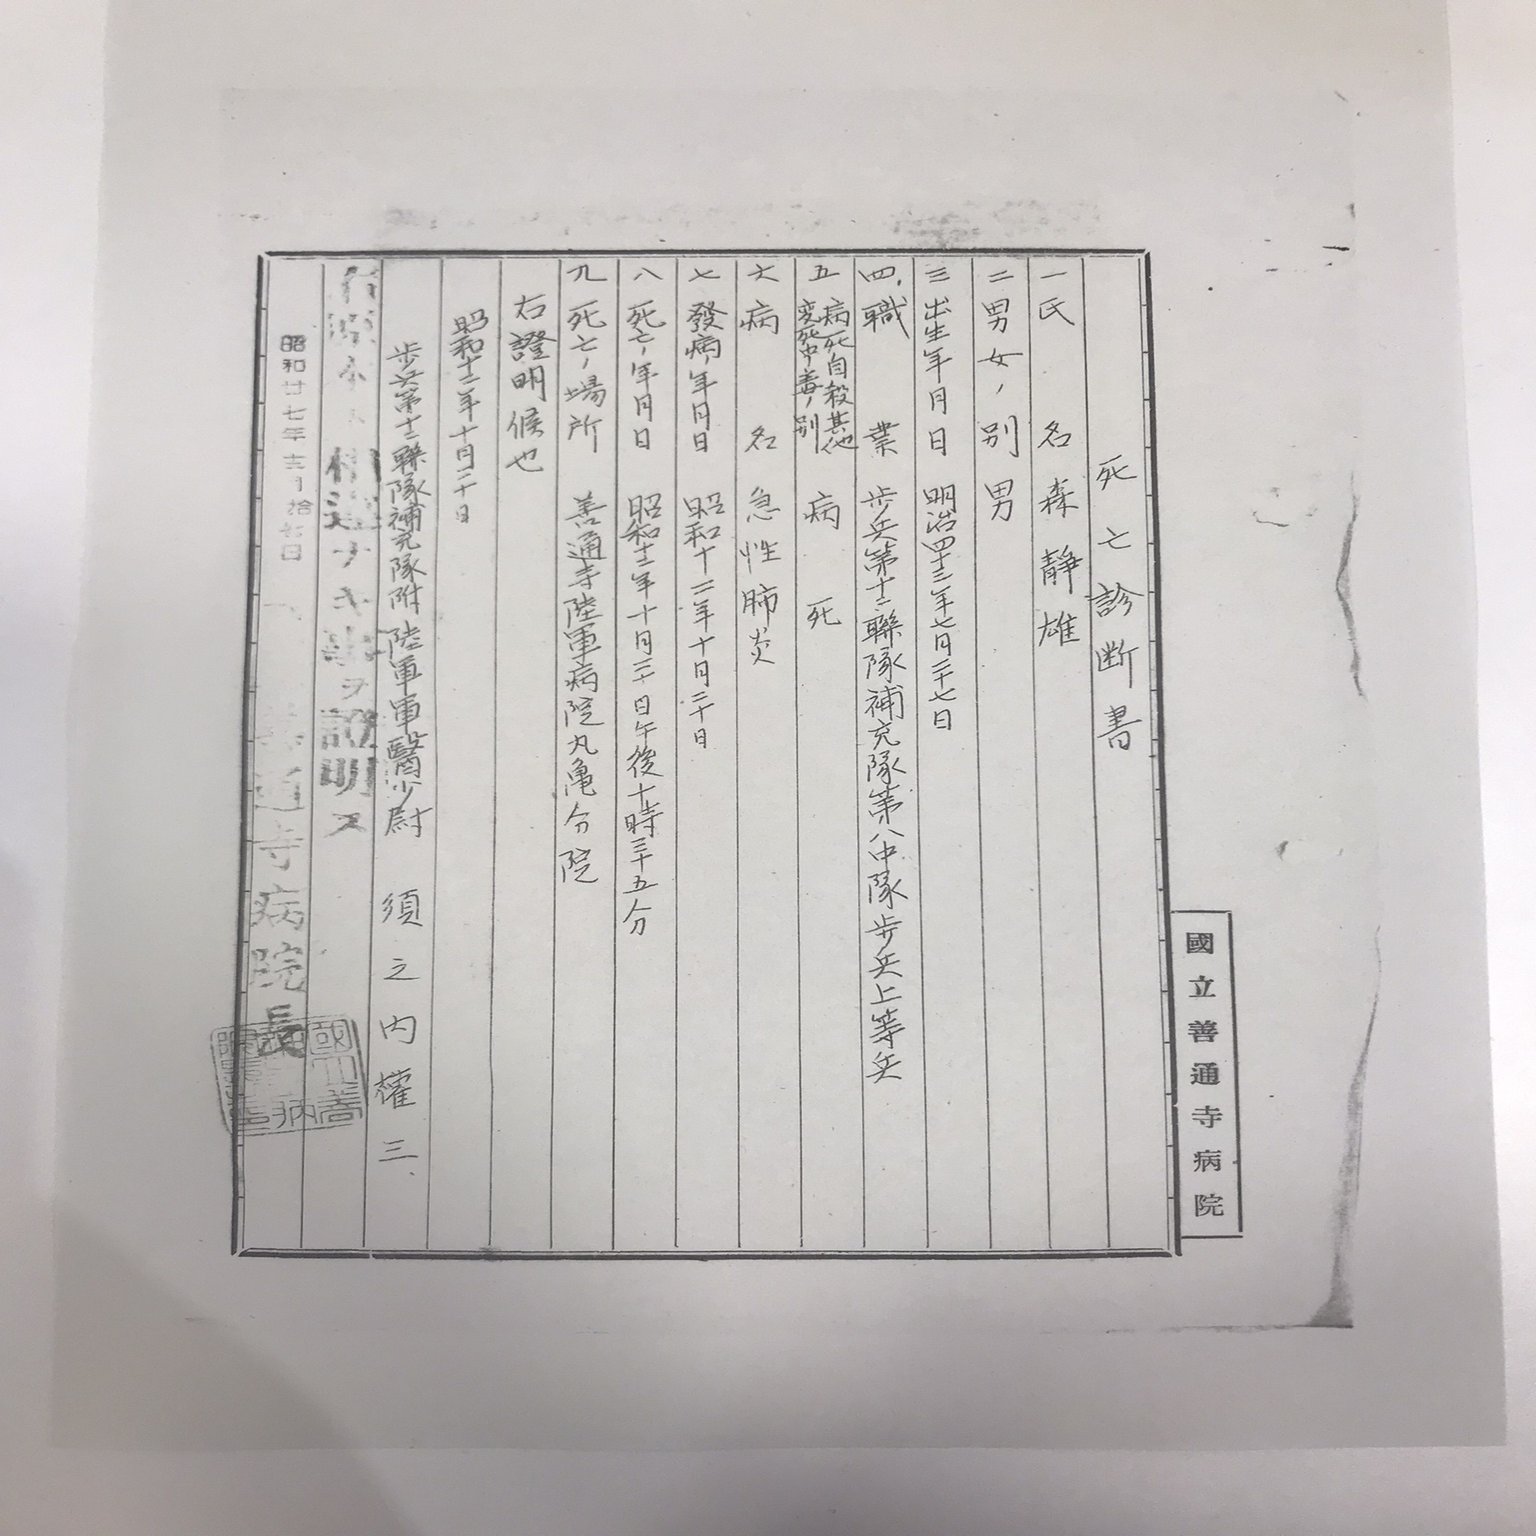 國立善通寺病院
死亡診断書
一 氏名 森静雄
二 男女ノ別 男
三 出生年月日 明治四十三年七月二十七日
四、職業 歩兵第十二聯隊補充隊第八中隊歩兵上等兵
五 病死自殺其他変死中毒ノ別 病死
六 病名 急性肺炎
七 發病ノ年月日 昭和十二年十月二十日
八 死亡ノ年月日 昭和十二年十月二十日午後十時三十五分
九 死亡ノ場所 善通寺陸軍病院丸亀分院
右證明候也
昭和十二年十月二十日
歩兵第十二聯隊補充隊附陸軍軍醫少尉 須之内權三、
相違ナキ事ヲ證明ス
昭和廿七年
善通寺病院長